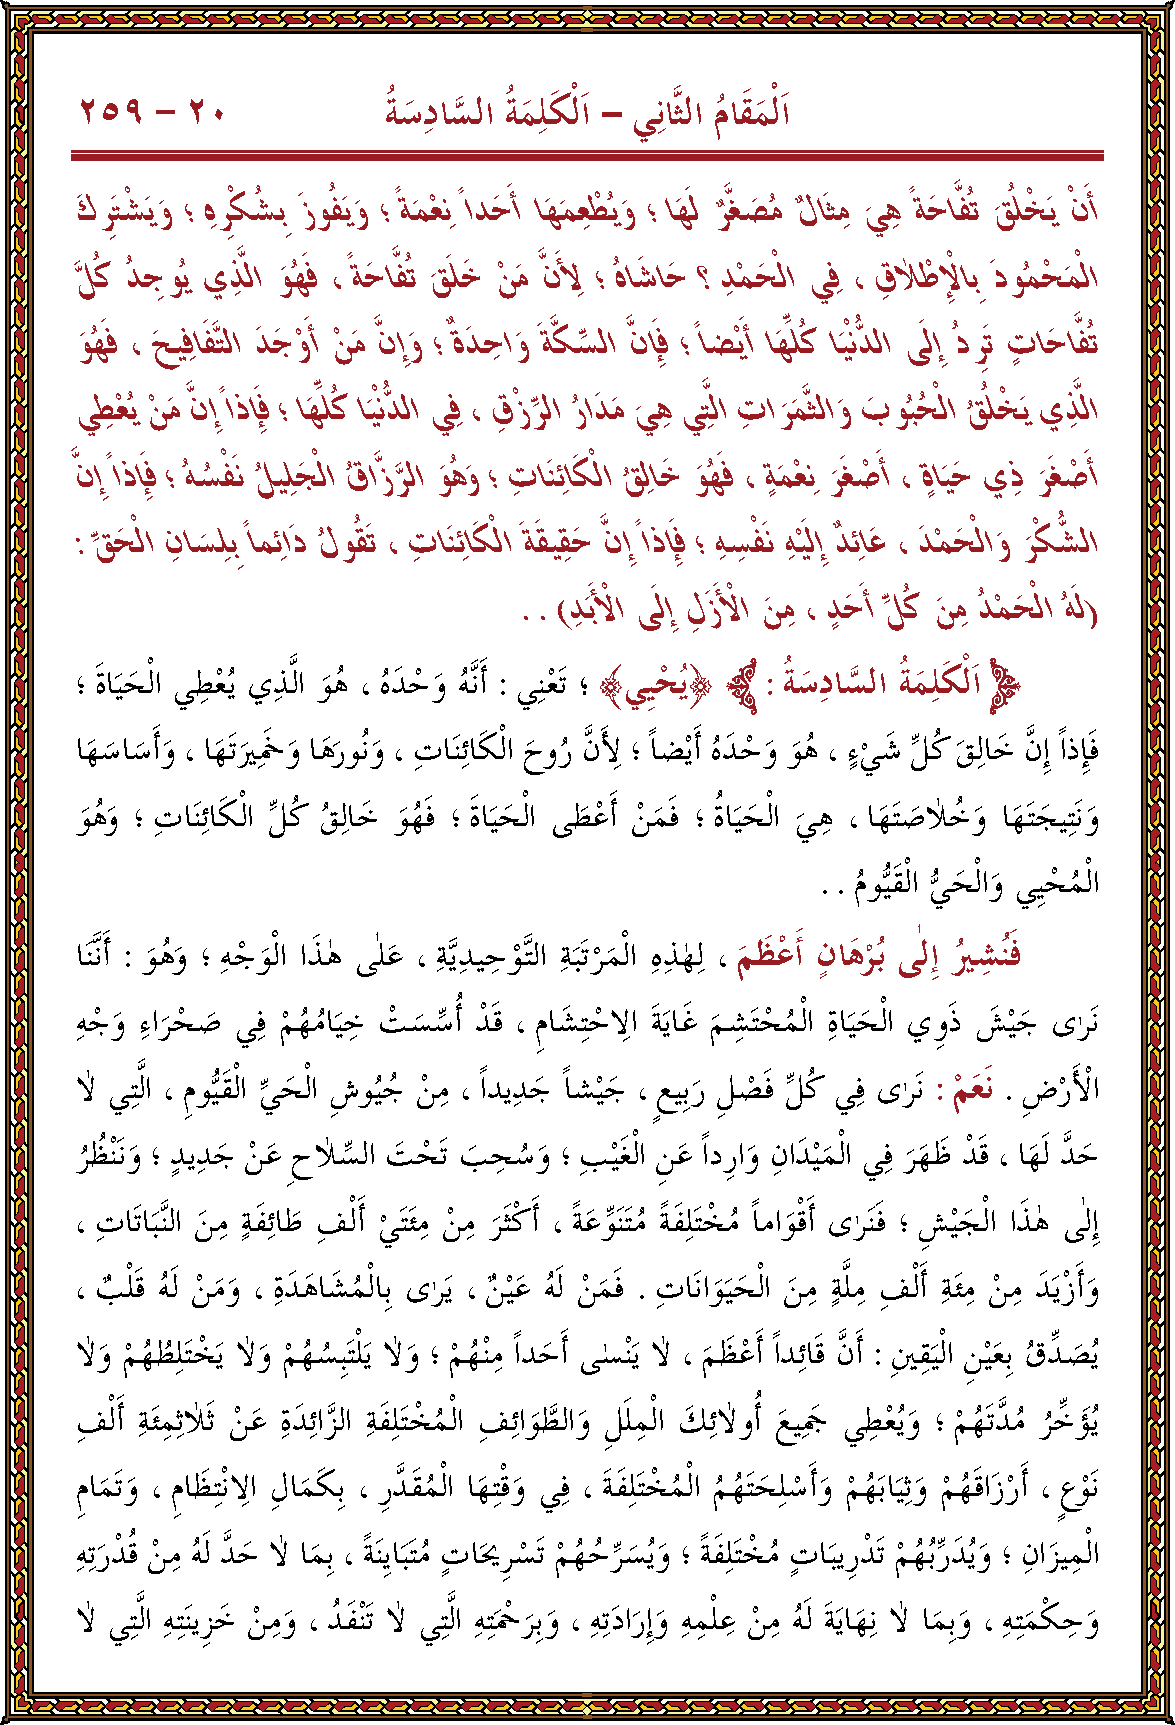 اَلْمَقَامُ الثَّانِي – اَلْكَلِمَةُ السَّادِسَةُ ٢٠ – ٢٥٩
أَنْ يَخْلُقَ تُفَّاحَةً هِيَ مِثَالٌ مُصَغَّرٌ لَهَا ؛ وَيُطْعِمَهَا أَحَداً نِعْمَةً ؛ وَيَفُوزَ بِشُكْرِهِ ؛ وَيَشْتَرِكَ
الْمَحْمُودَ بِالْإِطْلَاقِ ، فِي الْحَمْدِ ؟ حَاشَاهُ ؛ لِأَنَّ مَنْ خَلَقَ تُفَّاحَةً ، فَهُوَ الَّذِي يُوجِدُ كُلَّ
تُفَّاحَاتٍ تَرِدُ إِلَى الدُّنْيَا كُلِّهَا أَيْضاً ؛ فَإِنَّ السِّكَّةَ وَاحِدَةٌ ؛ وَإِنَّ مَنْ أَوْجَدَ التَّفَافِيحَ ، فَهُوَ
الَّذِي يَخْلُقُ الْحُبُوبَ وَالثَّمَرَاتِ الَّتِي هِيَ مَدَارُ الرِّزْقِ ، فِي الدُّنْيَا كُلِّهَا ؛ فَإِذاً إِنَّ مَنْ يُعْطِي
أَصْغَرَ ذِي حَيَاةٍ ، أَصْغَرَ نِعْمَةٍ ، فَهُوَ خَالِقُ الْكَائِنَاتِ ؛ وَهُوَ الرَّزَّاقُ الْجَلِيلُ نَفْسُهُ ؛ فَإِذاً إِنَّ
الشُّكْرَ وَالْحَمْدَ ، عَائِدٌ إِلَيْهِ نَفْسِهِ ؛ فَإِذاً إِنَّ حَقِيقَةَ الْكَائِنَاتِ ، تَقُولُ دَائِماً بِلِسَانِ الْحَقِّ :
(لَهُ الْحَمْدُ مِنَ كُلِّ أَحَدٍ ، مِنَ الْأَزَلِ إِلَى الْأَبَدِ) . .
اَلْكَلِمَةُ السَّادِسَةُ : ﴿يُحْيِي﴾ ؛ تَعْنِي : أَنَّهُ وَحْدَهُ ، هُوَ الَّذِي يُعْطِي الْحَيَاةَ ؛
فَإِذاً إِنَّ خَالِقَ كُلِّ شَيْءٍ ، هُوَ وَحْدَهُ أَيْضاً ؛ لِأَنَّ رُوحَ الْكَائِنَاتِ ، وَنُورَهَا وَخَمِيرَتَهَا ، وَأَسَاسَهَا
وَنَتِيجَتَهَا وَخُلَاصَتَهَا ، هِيَ الْحَيَاةُ ؛ فَمَنْ أَعْطَى الْحَيَاةَ ؛ فَهُوَ خَالِقُ كُلِّ الْكَائِنَاتِ ؛ وَهُوَ
الْمُحْيِي وَالْحَيُّ الْقَيُّومُ . .
فَنُشِيرُ إِلٰى بُرْهَانٍ أَعْظَمَ ، لِهٰذِهِ الْمَرْتَبَةِ التَّوْحِيدِيَّةِ ، عَلٰى هٰذَا الْوَجْهِ ؛ وَهُوَ : أَنَّنَا
نَرٰى جَيْشَ ذَوِي الْحَيَاةِ الْمُحْتَشِمَ غَايَةَ الِاحْتِشَامِ ، قَدْ أُسِّسَتْ خِيَامُهُمْ فِي صَحْرَاءِ وَجْهِ
الْأَرْضِ . نَعَمْ : نَرٰى فِي كُلِّ فَصْلِ رَبِيعٍ ، جَيْشاً جَدِيداً ، مِنْ جُيُوشِ الْحَيِّ الْقَيُّومِ ، الَّتِي لَا
حَدَّ لَهَا ، قَدْ ظَهَرَ فِي الْمَيْدَانِ وَارِداً عَنِ الْغَيْبِ ؛ وَسُحِبَ تَحْتَ السِّلَاحِ عَنْ جَدِيدٍ ؛ وَنَنْظُرُ
إِلٰى هٰذَا الْجَيْشِ ؛ فَنَرٰى أَقْوَاماً مُخْتَلِفَةً مُتَنَوِّعَةً ، أَكْثَرَ مِنْ مِئَتَيْ أَلْفِ طَائِفَةٍ مِنَ النَّبَاتَاتِ ،
وَأَزْيَدَ مِنْ مِئَةِ أَلْفِ مِلَّةٍ مِنَ الْحَيَوَانَاتِ . فَمَنْ لَهُ عَيْنٌ ، يَرٰى بِالْمُشَاهَدَةِ ، وَمَنْ لَهُ قَلْبٌ ،
يُصَدِّقُ بِعَيْنِ الْيَقِينِ : أَنَّ قَائِداً أَعْظَمَ ، لَا يَنْسٰى أَحَداً مِنْهُمْ ؛ وَلَا يَلْتَبِسُهُمْ وَلَا يَخْتَلِطُهُمْ وَلَا
يُؤَخِّرُ مُدَّتَهُمْ ؛ وَيُعْطِي جَمِيعَ أُولٰئِكَ الْمِلَلِ وَالطَّوَائِفِ الْمُخْتَلِفَةِ الزَّائِدَةِ عَنْ ثَلَاثِمِئَةِ أَلْفِ
نَوْعٍ ، أَرْزَاقَهُمْ وَثِيَابَهُمْ وَأَسْلِحَتَهُمُ الْمُخْتَلِفَةَ ، فِي وَقْتِهَا الْمُقَدَّرِ ، بِكَمَالِ الِانْتِظَامِ ، وَتَمَامِ
الْمِيزَانِ ؛ وَيُدَرِّبُهُمْ تَدْرِيبَاتٍ مُخْتَلِفَةً ؛ وَيُسَرِّحُهُمْ تَسْرِيحَاتٍ مُتَبَايِنَةً ، بِمَا لَا حَدَّ لَهُ مِنْ قُدْرَتِهِ
وَحِكْمَتِهِ ، وَبِمَا لَا نِهَايَةَ لَهُ مِنْ عِلْمِهِ وَإِرَادَتِهِ ، وَبِرَحْمَتِهِ الَّتِي لَا تَنْفَدُ ، وَمِنْ خَزِينَتِهِ الَّتِي لَا